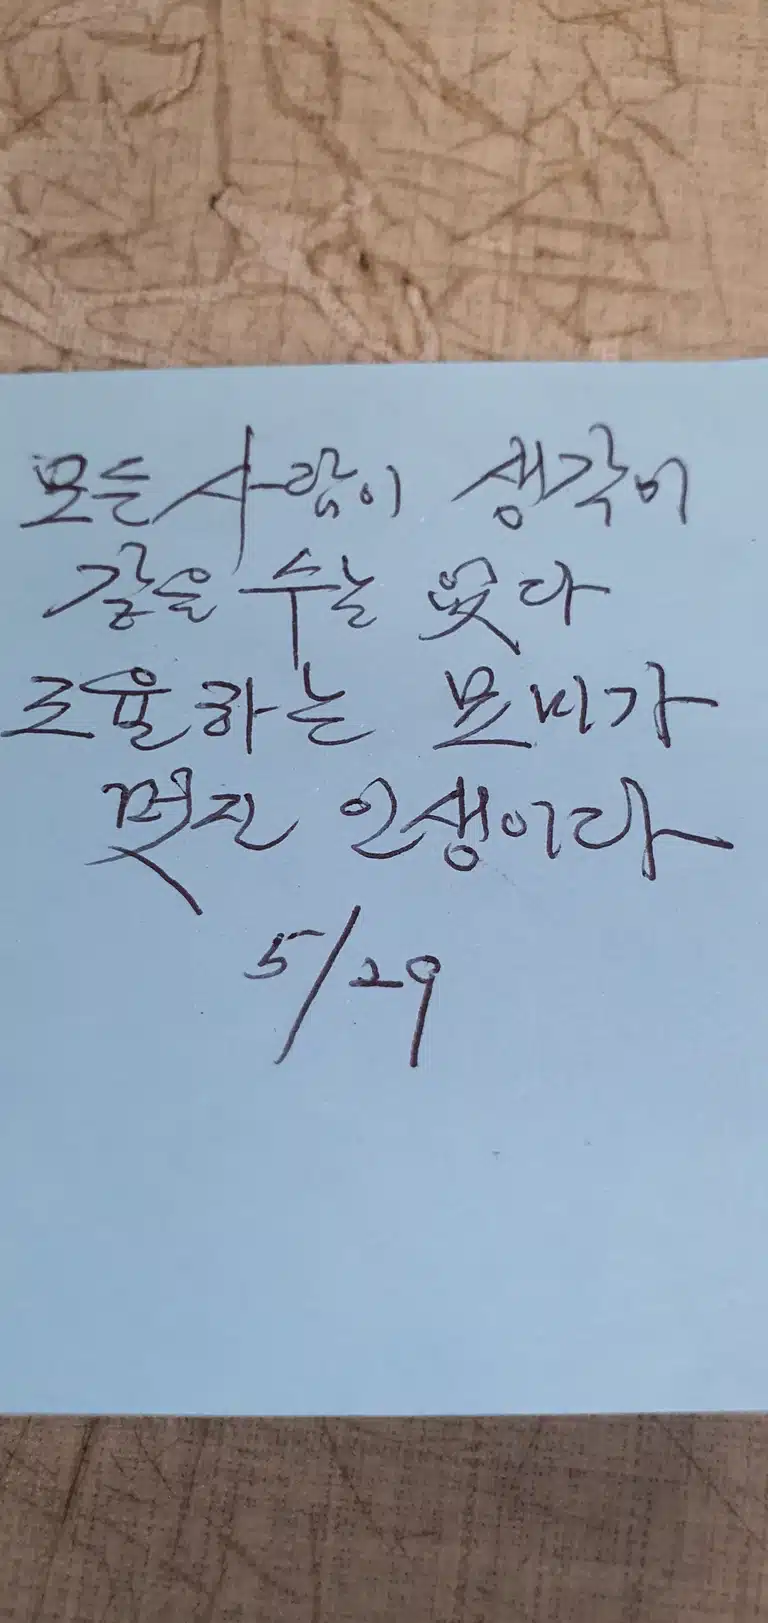 모든 사람이 생각이
같을 수는 없다
조율하는 묘미가
멋진 인생이라
5/29